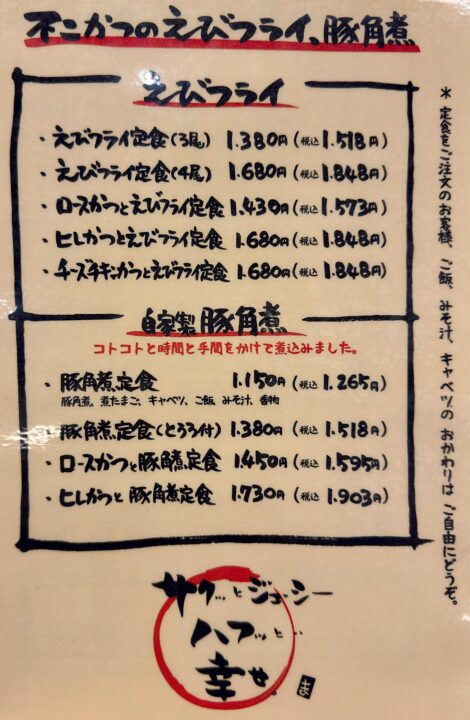 不二かつのえびフライ、豚角煮
えびフライ
・えびフライ定食(3尾) 1.380円(税込1.518円)
・えびフライ定食(4尾) 1.680円(税込1.848円)
・ロースかつとえびフライ定食 1.430円(税込1.573円)
・ヒレかつとえびフライ定食 1.680円(税込1.848円)
・チーズチキンかつとえびフライ定食 1.680円(税込1.848円)
自家製 豚角煮
コトコトと時間と手間をかけて煮込みました。
・豚角煮定食 1.150円(税込1.265円)
豚角煮、煮たまご、キャベツ、ご飯 みそ汁、香物
・豚角煮定食(とろろ付) 1.380円(税込1.518円)
・ロースかつと豚角煮定食 1.450円(税込1.595円)
・ヒレかつと豚角煮定食 1.730円(税込1.903円)
*定食をご注文のお客様、ご飯、みそ汁、キャベツのおかわりはご自由にどうぞ。
サクッとジューシー
ハフッと…
幸せ。